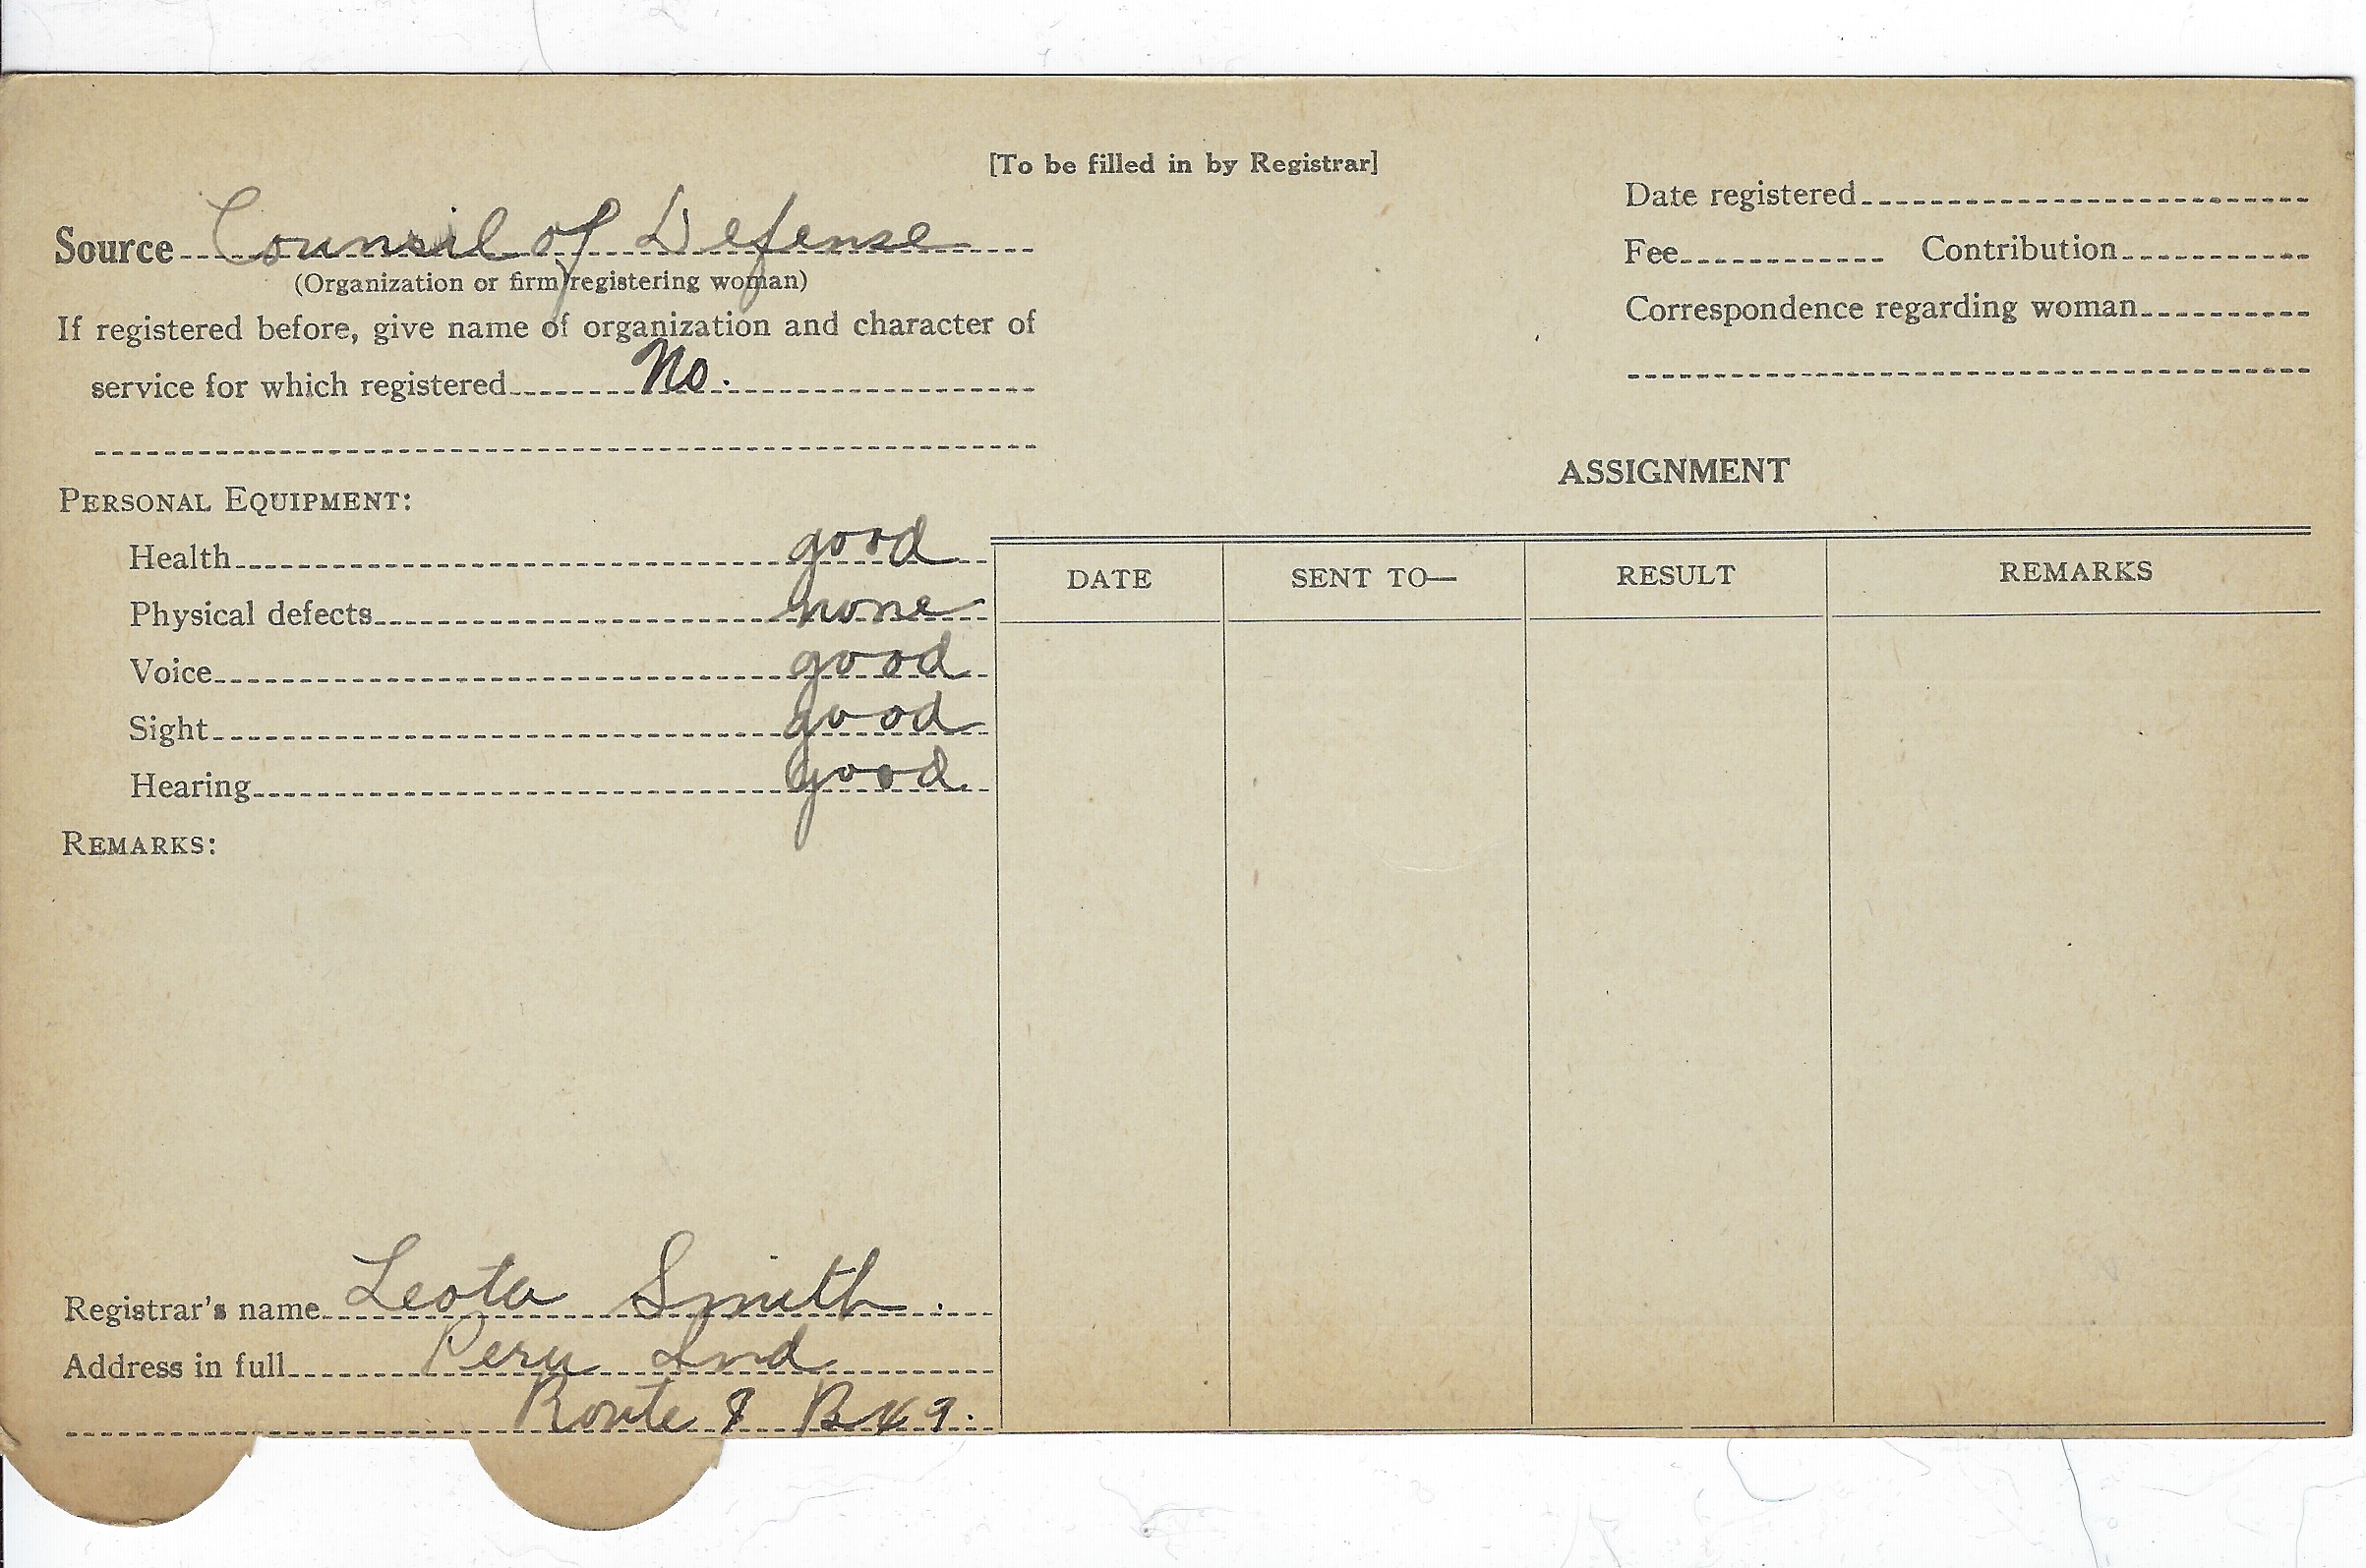 [To be filled in by Registrar]
Source Counsil of Defense
(Organization or firm registering woman)
If registered before, give name of organization and character of
service for which registered No.
Date registered
Fee Contribution
Correspondence regarding woman
PERSONAL EQUIPMENT:
Health good
Physical defects none
Voice good
Sight good
Hearing good
REMARKS:
Registrar's name Leota Smith.
Address in full Peru Ind
Route 8 B
ASSIGNMENT
DATE SENT TO— RESULT REMARKS